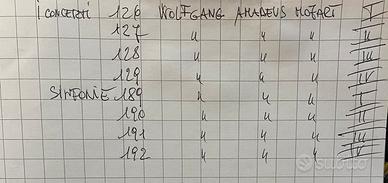 I CONCERTI 126 WOLFGANG AMADEUS MOZART I
127 " " " II
128 " " " III
129 " " " IV
SINFONIE 189 " " " I
190 " " " II
191 " " " III
192 " " " IV
subito